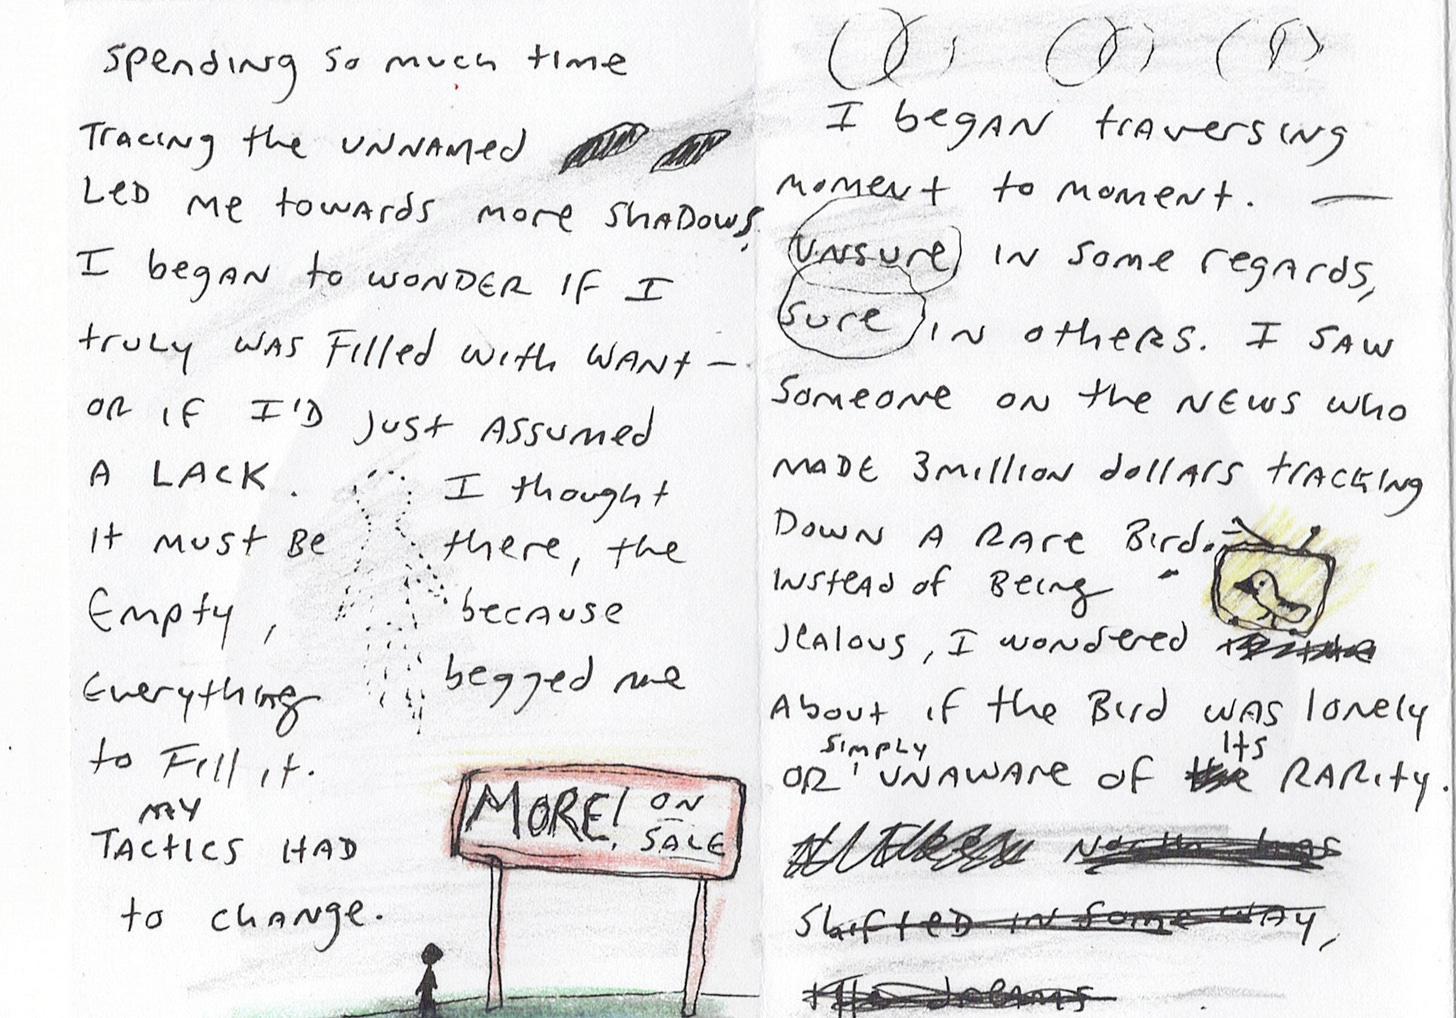 Spending so much time
Tracing the unnamed
Led me towards more shadows.
I began to wonder if I
truly was filled with want —
or if I'd just assumed
a lack.
It must be
empty,
everything
to fill it.
my
Tactics had
to change.
I thought
there, the
because
begged me
MORE! ON
SALE
I began traversing
moment to moment. —
Unsure in some regards,
sure in others. I saw
someone on the news who
made 3million dollars tracking
down a rare bird.
Instead of being
jealous, I wondered
about if the bird was lonely
simply its
or unaware of rarity.
North has
shifted in some way,